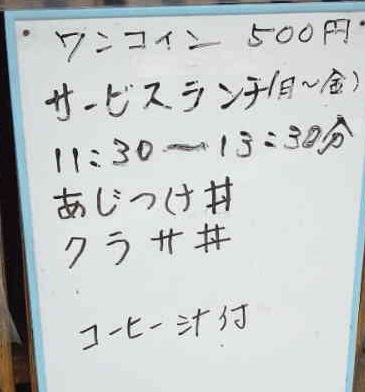 ワンコイン 500円
サービスランチ(月〜金)
11:30ー13:30分
あじつけ丼
クラサ丼
コーヒー汁付